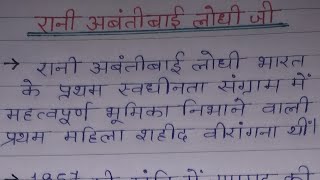 रानी अबंतीबाई लोधी जी
→ रानी अबंतीबाई लोधी भारत
के प्रथम स्वधीनता संग्राम में
महत्वपूर्ण भूमिका निभाने वाली
प्रथम महिला शहीद वीरांगना थीं।
→ 1857 की